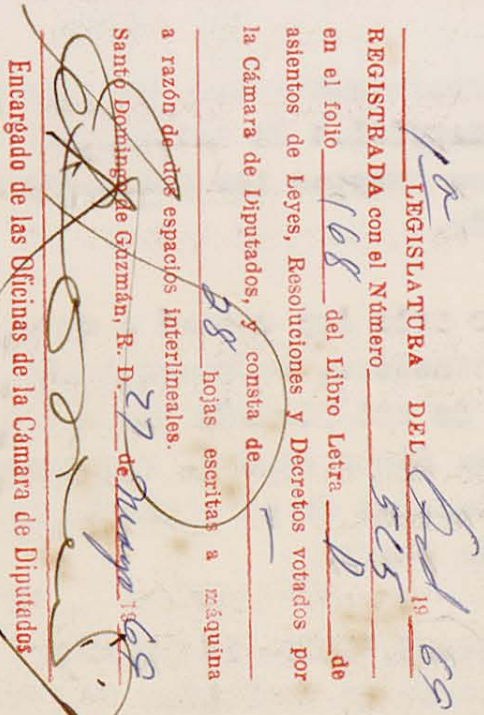 1a LEGISLATURA DEL Ord 1969
REGISTRADA con el Número 525
en el folio 168 del Libro Letra D de
asientos de Leyes, Resoluciones y Decretos votados por
la Cámara de Diputados, y consta de
28 hojas escritas a máquina
a razón de dos espacios interlineales.
Santo Domingo de Guzmán, R. D. 27 de Mayo 1969
Encargado de las Oficinas de la Cámara de Diputados